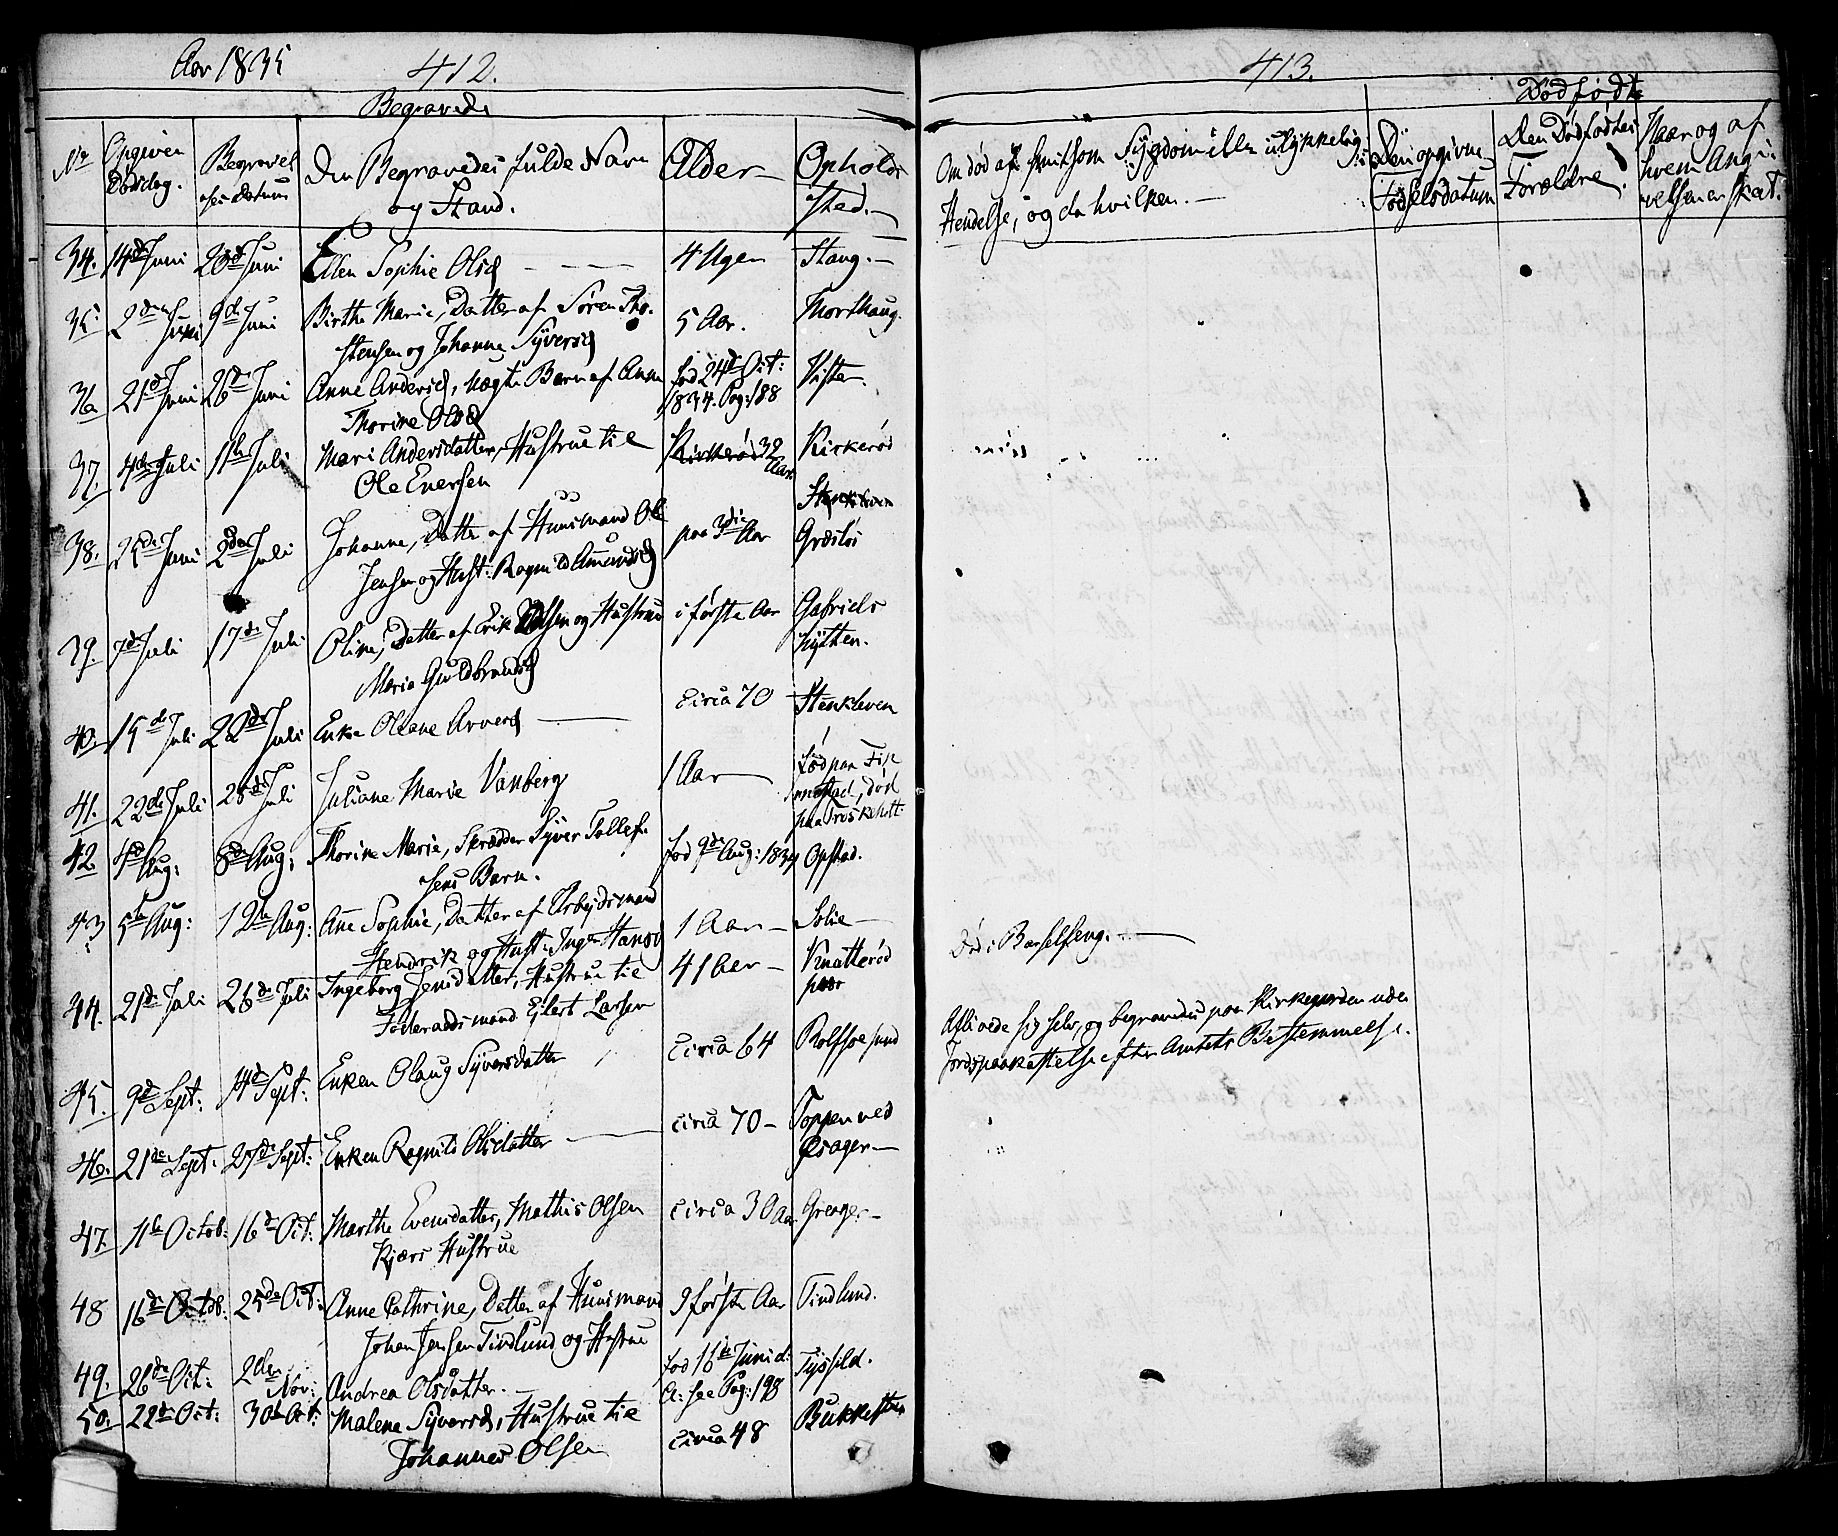 Aar 1835
412.
Begravede
No
Opgiven Dødsdag.
Begravelsens Datum
Den Begravedes fulde Navn og Stand.
Alder
Opholds Sted.
34. 14de Juni 20de Juni Ellen Sophie Olsd 4 Uger Stang.
35. 2den Juni 9de Juni Birthe Marie, Datter af Søren Tho-
stensen og Johanne Syversd 5 Aar. Northaug.
36. 21de Juni 26de Juni Anne Andersd, uægte Barn af Anne
Thorine Olsd fød 24de Oct: 1834. Pag: 188 Vister.
37. 4de Juli 11te Juli Mari Andersdatter, Hustrue til
Ole Evensen Kirkerød 32 Aar Kirkerød
38. 25de Juni 2den Juli Johanne, Datter af Huusmand Ole
Jensen og Hust: Ragnild Amundsd paa 3die Aar Stenkleven Græsløs
39. 7de Juli 17de Juli Oline, Datter af Erik Olsen og Hustrue
Maria Guldbrandsd i første Aar Gabriels Hytten.
40. 15de Juli 22de Juli Enke Oleane Arversd circa 70 Stenkleven
41. 22de Juli 28de Juli Juliane Marie Vanberg 1 Aar fød paa
død paa
42 4de Aug: 8de Aug: Thorine Marie, Skrædder Syver Tollef-
sens Barn. fød 9de Aug: 1834 Opstad.
43 5te Aug: 12te Aug: Ane Sophie, Datter af Arbejdsmand
Hendrik og Hust: Inger Hansd 1 Aar Solie
44. 21de Juli 26de Juli Ingeborg Jensdatter, Hustrue til
Føderaadsmand Ejlert Larsen 41 Aar Knatterød
45. 9de Sept: 14de Sept: Enken Olaug Syversdatter circa 64 Rolfsøesund
46. 21de Sept. 27de Sept: Enken Ragnild Olsdatter circa 70 Toppen ved
47. 11te Octob: 16de Oct: Marthe Evensdatter, Mathis Olsen
Kjærs Hustrue circa 30 Aar Greager
48 16de Octob: 25de Oct: Anne Cathrine, Datter af Huusmand
Johan Jensen Tindlund og Hustrue 9 første Aar Tindlund.
49. 26de Oct: 2den Nov: Andrea Olsdatter. fød 16de Juni d:
A: see Pag: 198
50. 22de Oct: 30te Oct: Malene Syversd, Hustrue til
Johannes Olsen circa 48
413.
Om død af smitsom Sygdom eller ulykkelig
Hendelse, og da hvilken.
Dødfødte
Den opgivne Fødselsdatum
Den Dødfødtes Forældre.
Naar og af hvem Angivelsen er skeet.
Død i Barselseng.
Aflivede sig selv, og begravedes paa Kirkegaarden uden
Jordspaakastelse efter Amtets Bestemmelse.